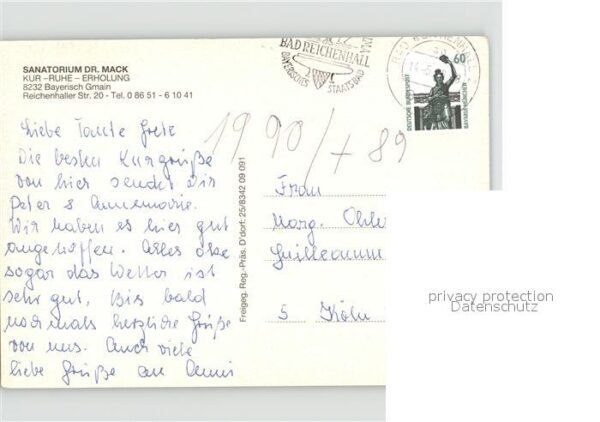 SANATORIUM DR. MACK
KUR –RUHE – ERHOLUNG
8232 Bayerisch Gmain
Reichenhaller Str. 20 - Tel. 0 86 51 - 6 10 41
BAD REICHENHALL
BAYERISCHES STAATSBAD
60
DEUTSCHE BUNDESPOST
BAVARIA MÜNCHEN
1990/+89
Liebe Tante Grete
Die besten Kurgrüße
von hier sendet dir
Peter & Annemarie.
Wir haben es hier gut
angetroffen. Alles
sogar das Wetter ist
sehr gut. Bis bald
nochmals herzliche Grüße
von uns. Auch viele
liebe Grüße an Anni
Freigeg. Reg.-Präs. D'dorf: 25/8342 09 091
Frau
Marg.
Guilleaum
5 Köln
privacy protection
Datenschutz